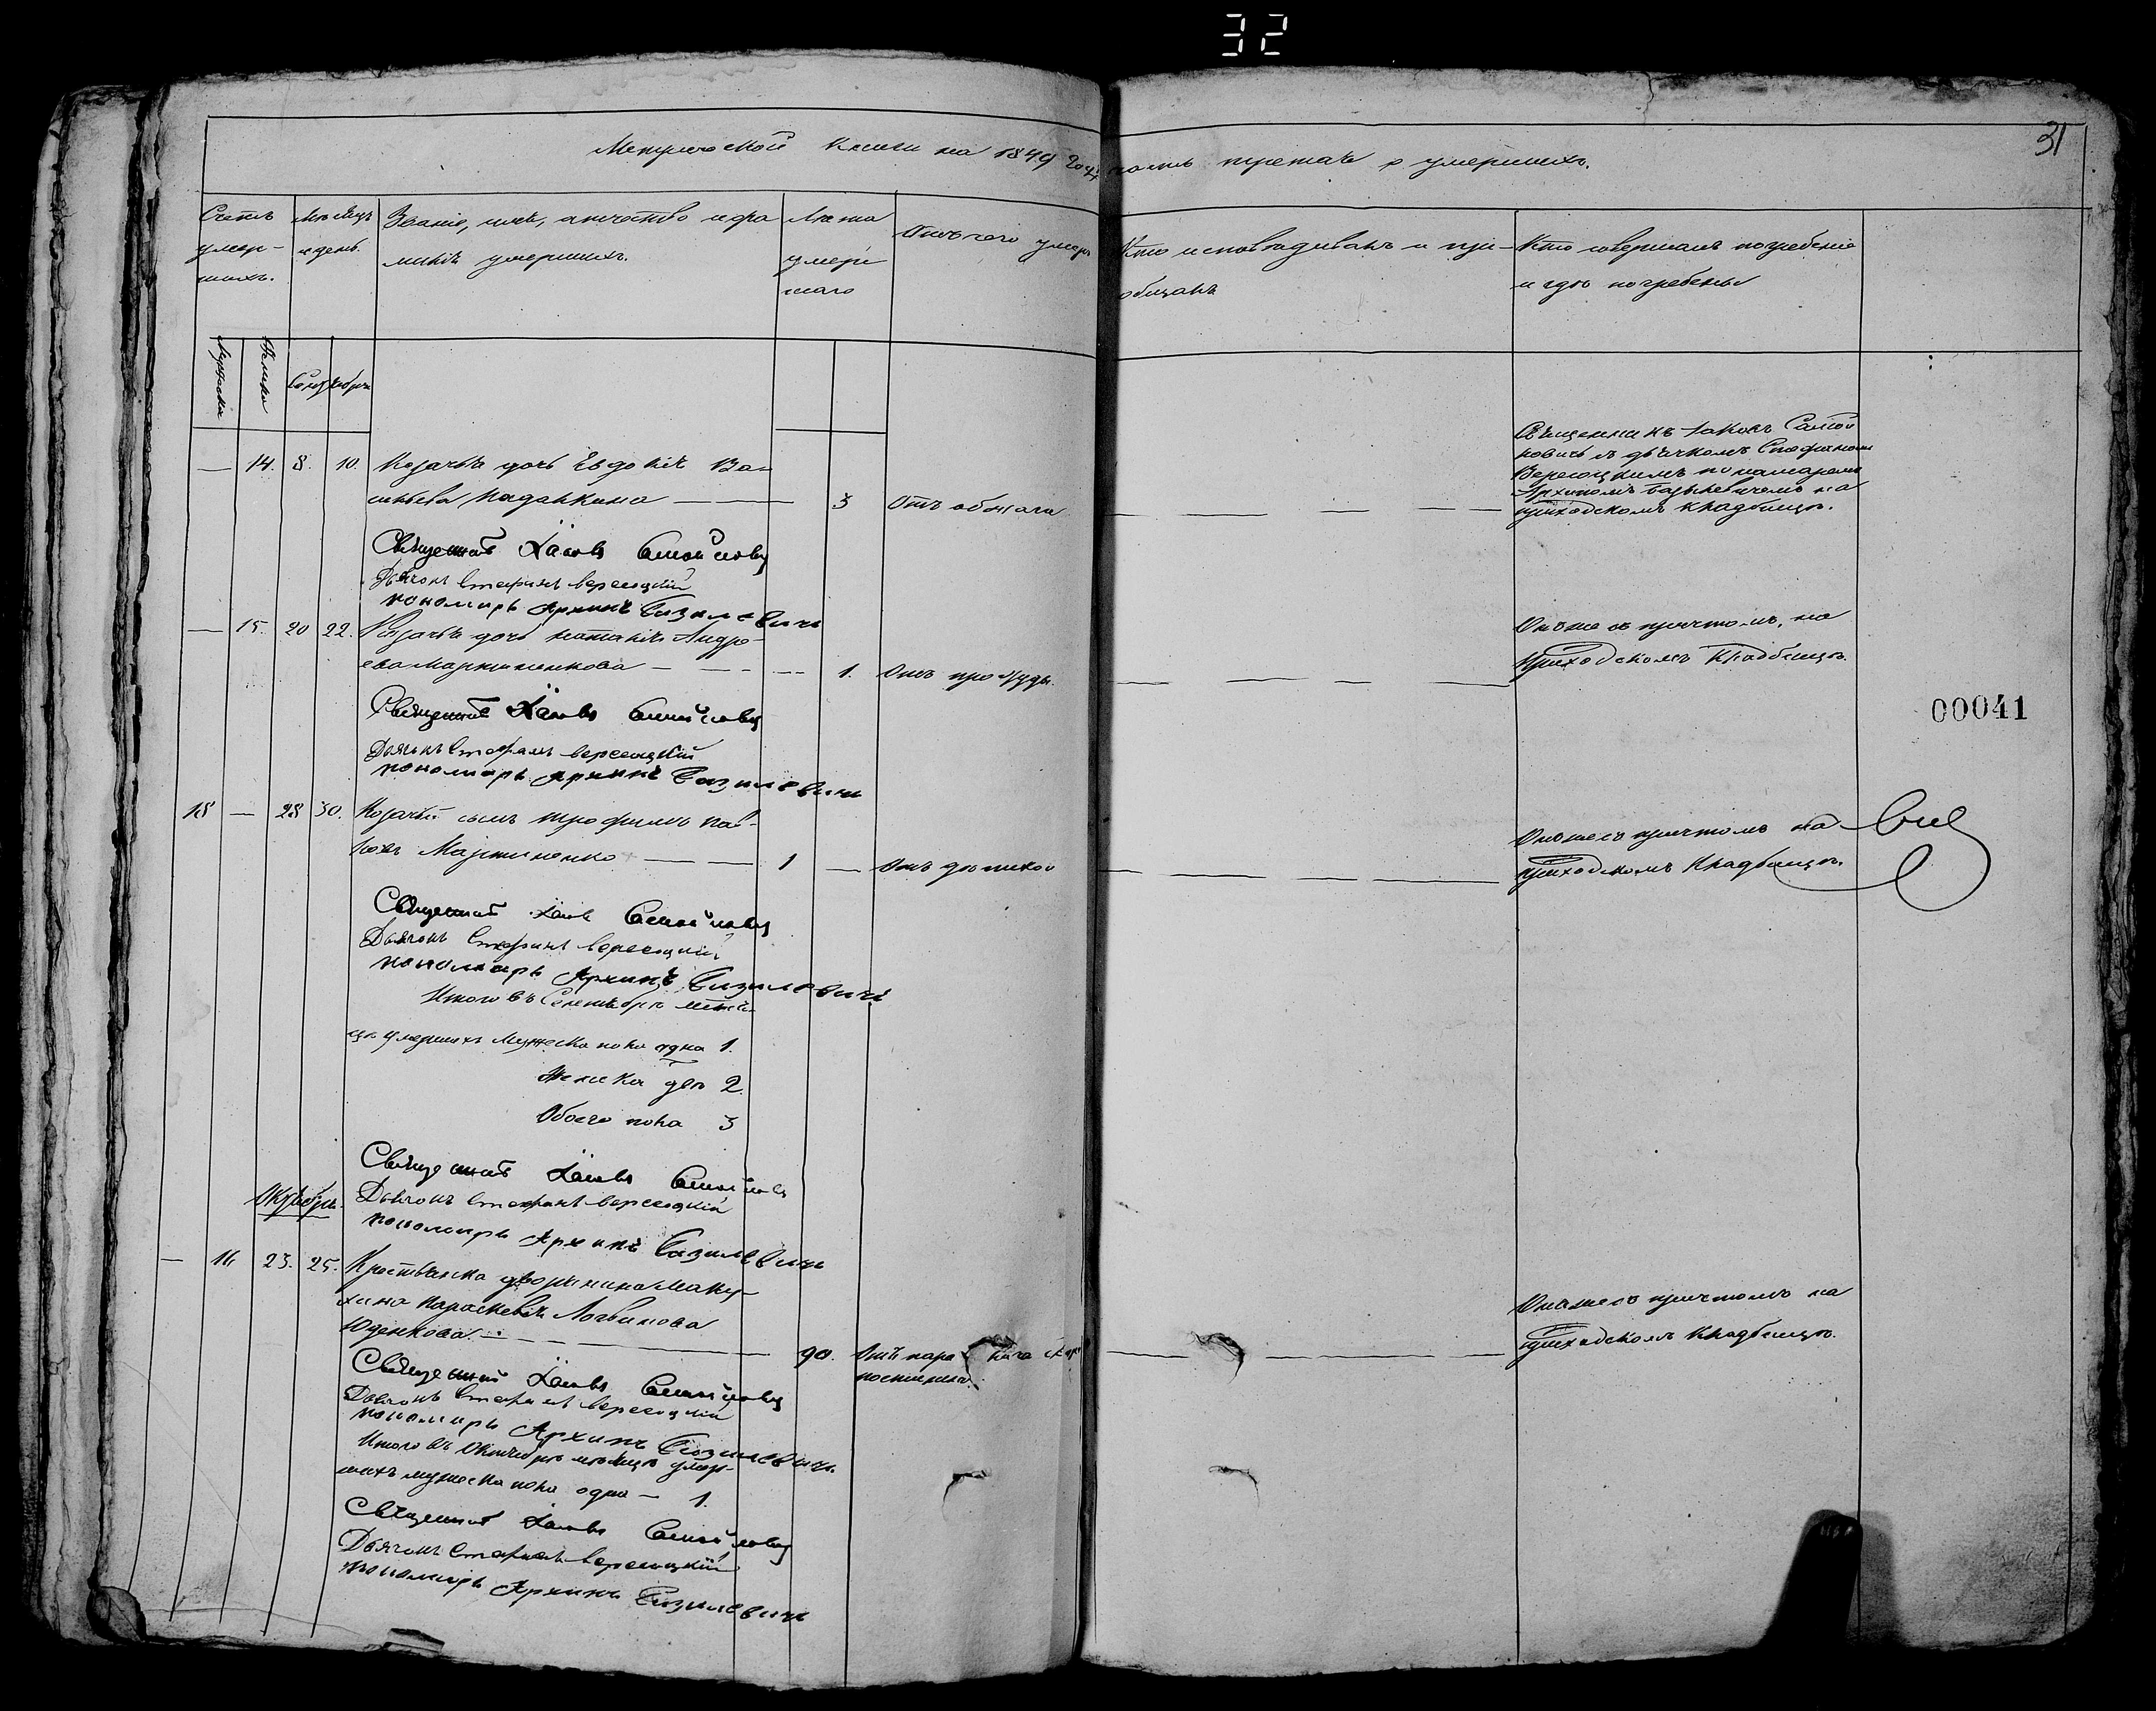 32
31
Метрической книги на 1849 годъ часть третья о умершихъ.
Счетъ умер-
шихъ.
Мѣсяцъ
и день.
Званіе, имя, отчество и фа
милія умершихъ.
Лѣта
умер
шаго
Отъ чего умеръ
Кто исповѣдывалъ и прі-
общалъ
Кто совершалъ погребеніе
и гдѣ погребены
Мужеска
Женска
Сентября
— 14. 8. 10. Козачья дочь Евдокія Ва-
сильева
3 Отъ
Священникъ Іаковъ Самой
ловичъ съ дьячкомъ Стефаномъ
Вересоцкимъ пономаремъ
Архипомъ Базилевичемъ на
приходскомъ кладбищѣ.
Священникъ Іаковъ Самойловичъ
Дьячокъ Стефанъ Вересоцкій
пономарь Архипъ Базилевичъ
— 15. 20 22. Козачья дочь Наталія Андре-
ева Мартиненкова 1. Отъ простуды.
Онъ же съ причтомъ, на
приходскомъ кладбищѣ.
Священникъ Іаковъ Самойловичъ
Дьячокъ Стефанъ Вересоцкій
пономарь Архипъ Базилевичъ
00041
18 — 28 30. Козачій сынъ Трофимъ Пав-
ловъ Мартиненко 1 — Отъ
Онъ же съ причтомъ на
приходскомъ кладбищѣ.
Священникъ Іаковъ Самойловичъ
Дьячокъ Стефанъ Вересоцкій
пономарь Архипъ Базилевичъ
Итого въ Сентябрѣ мѣся-
цѣ умершихъ мужеска пола одна 1.
Женска двѣ 2.
Обоего пола 3
Священникъ Іаковъ Самойловичъ
Дьячокъ Стефанъ Вересоцкій
пономарь Архипъ Базилевичъ
Октябрь.
— 16 23. 25. Крестьянка дворянина Маку-
хина Параскевія Логвинова
Юденкова. 90.
Онъ же съ причтомъ на
приходскомъ кладбищѣ.
Священникъ Іаковъ Самойловичъ
Дьячокъ Стефанъ Вересоцкій
пономарь Архипъ Базилевичъ
Итого въ Октябрѣ мѣсяцѣ умер-
шихъ мужеска пола одна — 1.
Священникъ Іаковъ Самойловичъ
Дьячокъ Стефанъ Вересоцкій
пономарь Архипъ Базилевичъ